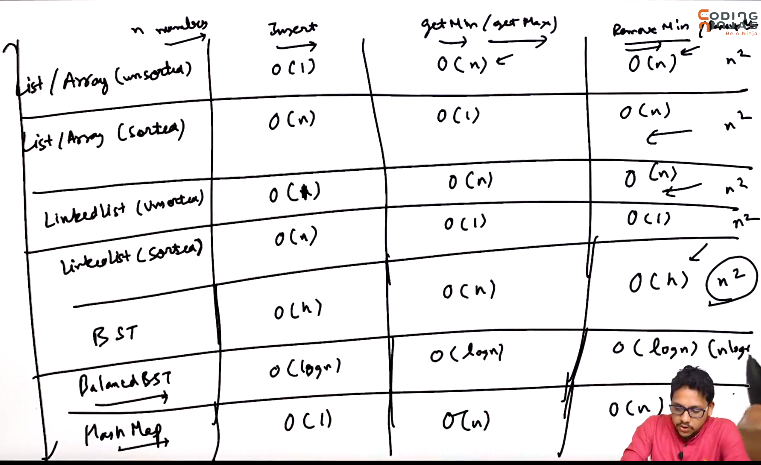 n numbers Insert getMin (getMax) Remove Min
CODING
List / Array (unsorted) O(1) O(n) O(n) n²
List / Array (Sorted) O(n) O(1) O(n) n²
Linked List (unsorted) O(1) O(n) O(n) n²
Linked List (Sorted) O(n) O(1) O(1) n²
BST O(h) O(h) O(h) n²
Balanced BST O(logn) O(logn) O(logn) (nlog
Hash Map O(1) O(n) O(n)